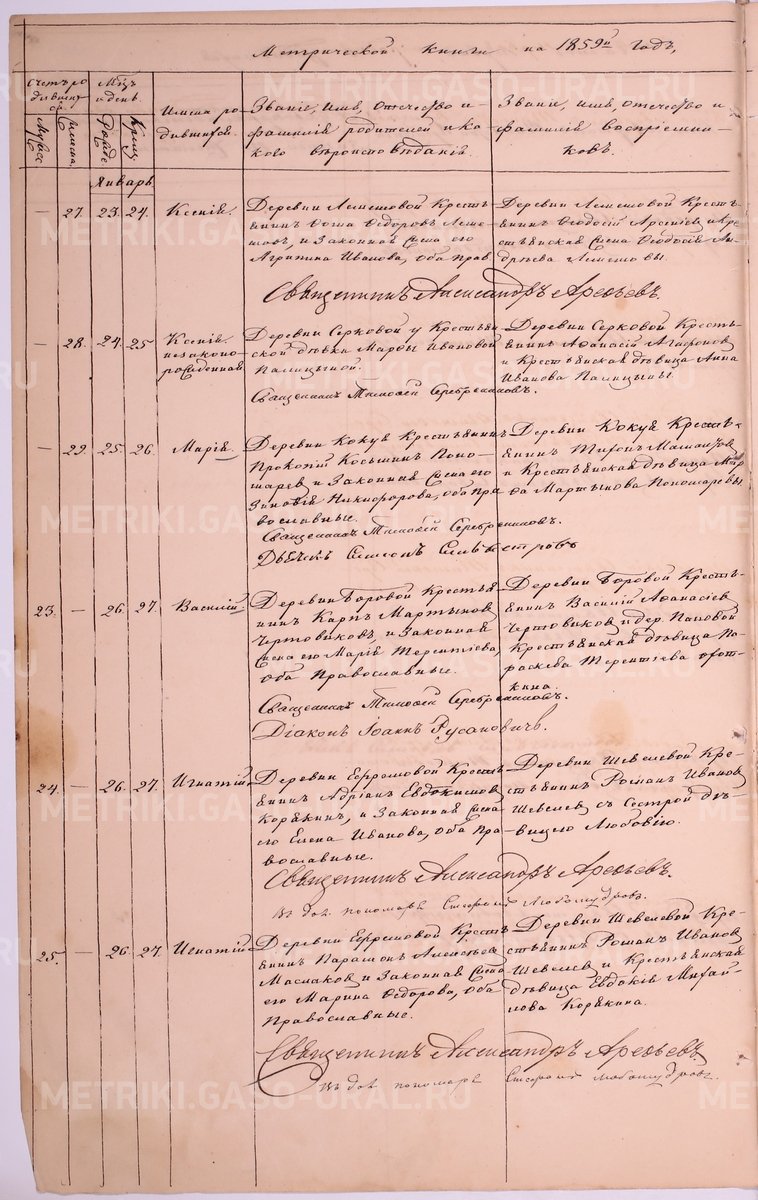 Метрической книги на 1859й годъ,
Счетъ родившихся
Мцъ и день.
Имена родившихся.
Званіе, имя, отечество и
фамилія родителей и ка-
кого вѣроисповѣданія.
Званіе, имя, отечество и
фамилія воспріемни-
ковъ.
Мужеск
женска.
Рожде
Крещ
Январь
— 27. 23. 24. Ксенія.
Деревни Лемешовой Кресть
янинъ Ѳома Ѳедоровъ Леме-
шовъ, и Законная Жена его
Агрипина Иванова, Оба Прав.
Деревни Лемешовой Кресть-
янинъ Ѳеодосій Арсеніевъ и Кре
стьянская Жена Ѳеодосія Ан-
дреева Лемешовы.
Священникъ Александръ Арефьевъ.
— 28. 24. 25 Ксенія.
незаконо-
рожденная
Деревни Серковой у Крестьян
ской дѣвки Марѳы Ивановой
Палицыной.
Деревни Серковой Кресть-
янинъ Аѳанасій Агафоновъ
и Крестьянская дѣвица Анна
Иванова Палицыны.
Священникъ Тимофей Серебрениковъ.
— 29. 25. 26. Марія.
Деревни Кокуя Крестьянинъ
Прокопій Косьминъ Поно-
маревъ, и Законная Жена его
Зиновія Никифорова, оба пра
вославные.
Деревни Кокуя Кресть-
янинъ Тихонъ
и Крестьянская дѣвица Мар
ѳа Мартынова Пономаревы
Священникъ Тимофей Серебрениковъ.
Дьячекъ Симеонъ Сильвестровъ
23. — 26. 27. Василій.
Деревни Боровой Крестья
нинъ Карпъ Мартыновъ
Чертовиковъ, и Законная
Жена его Марія Терентіева,
Оба Православные.
Деревни Боровой Кресть-
янинъ Василій Аѳанасіевъ
Чертовиковъ и дер. Пановой
Крестьянская дѣвица Па-
раскева Терентіева
кина.
Священникъ Тимофей Серебрениковъ.
Діаконъ Іоаннъ Русановичъ.
24. — 26. 27. Игнатій.
Деревни Ефремовой Кресть
янинъ Адріанъ Евдокимовъ
Корякинъ, и Законная Жена
его Елена Иванова, Оба Пра-
вославные.
Деревни Шевелевой Кре-
стьянинъ Романъ Ивановъ
Шевелевъ, съ Сестрой дѣ-
вицею Любовію.
Священникъ Александръ Арефьевъ.
Въ дол. пономаря Стефанъ Любомудровъ.
25. — 26 27. Игнатій
Деревни Ефремовой Кресть
янинъ Парамонъ Алексѣевъ
Маслаковъ и Законная Жена
его Марина Ѳедорова, Оба
Православные.
Деревни Шевелевой Кре-
стьянинъ Романъ Ивановъ
Шевелевъ и Крестьянская
дѣвица Евдокія Михай-
лова Корякина.
Священникъ Александръ Арефьевъ.
Въ дол. пономаря Стефанъ Любомудровъ.
METRIKI.GASO-URAL.RU